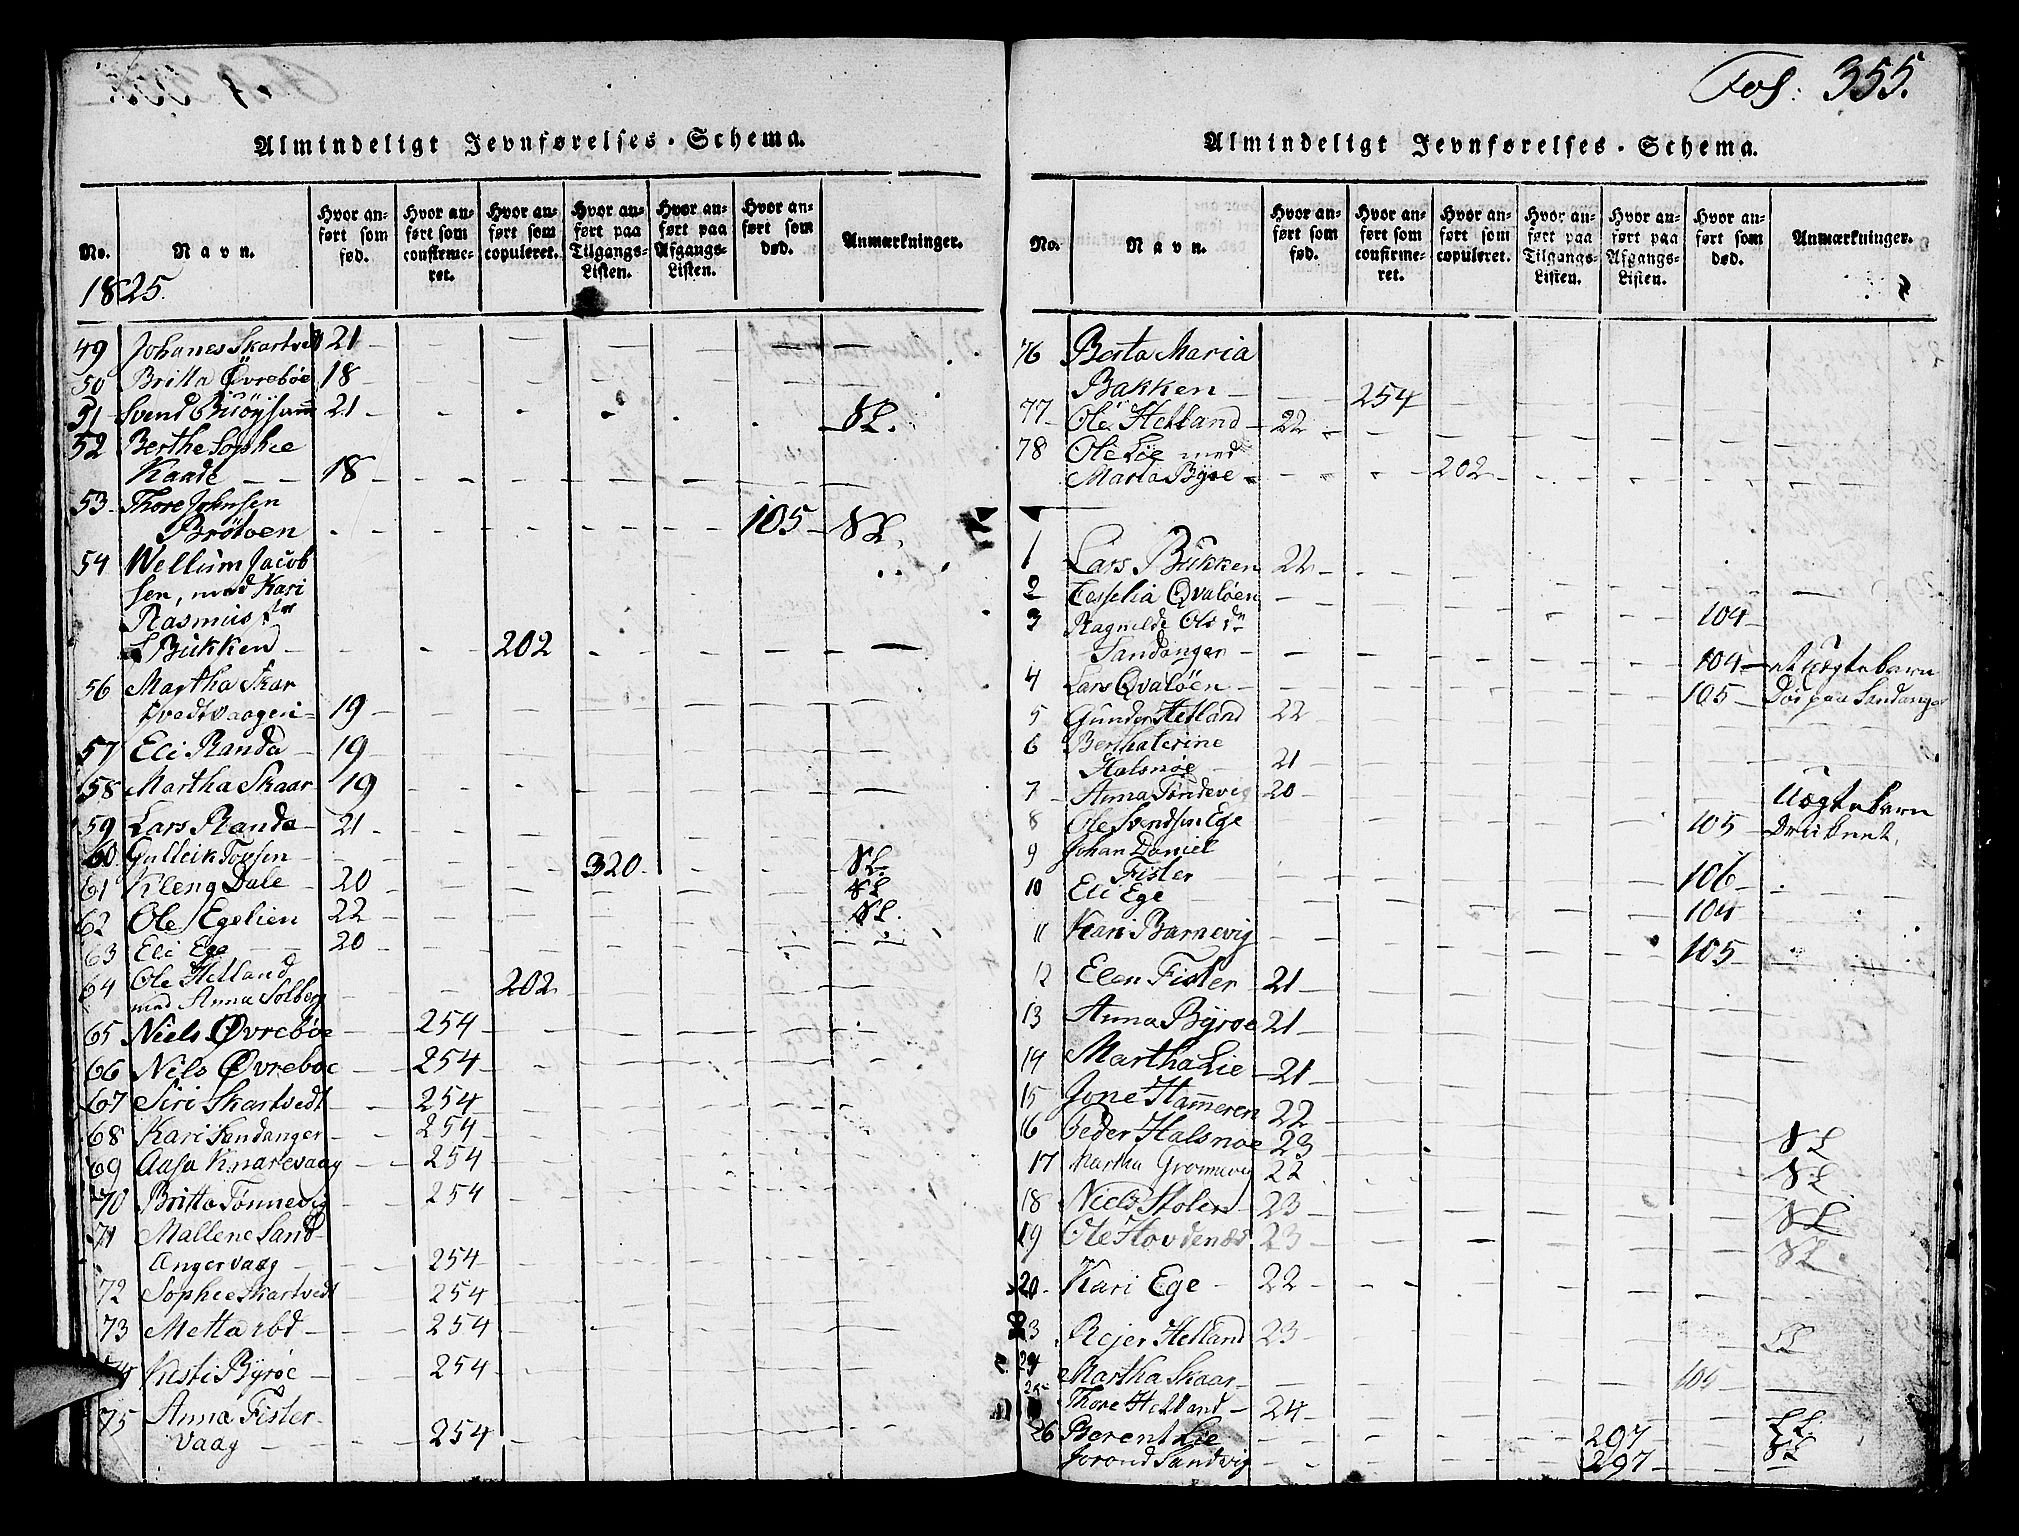 Fol: 355.
Almindeligt Jevnførelses-Schema.
No.
Navn.
Hvor anført som fød.
Hvor anført som confirmeret.
Hvor anført som copuleret.
Hvor anført paa Tilgangs-Listen.
Hvor anført paa Afgangs-Listen.
Hvor anført som død.
Anmærkninger.
1825.
49 Johanes Skartvedt 21
50 Britta Øvrebøe 18
51 Svend 21 SL.
52 Berthe Sophie
Kaade 18
53 Thore Johnsen
105 SL.
54 Wellum Jacob
sen, med Kari
Rasmus
Bukken 202
56 Martha Skar
tvedtvaagen 19
57 Eli Randa 19
58 Martha Skaar 19
59 Lars Randa 21
60 Gulleik 320 SL.
61 Kleng Dale 20 SL
62 Ole Egelien 22 SL.
63 Eli Ege 20
64 Ole Helland
med Anna Solberg 202
65 Niels Øvrebøe 254
66 Nils Øvreboe 254
67 Siri Skartvedt 254
68 Kari Sandanger 254
69 Aasa Knarevaag 254
70 Britta Tønnevig 254
71 Mallene Sand
Angervaag 254
72 Sophie Skartvedt 254
73 Metta ibd 254
74 Kisti Byröe 254
75 Anna Fister
vaag 254
Almindeligt Jevnførelses-Schema.
No.
Navn.
Hvor anført som fød.
Hvor anført som confirmeret.
Hvor anført som copuleret.
Hvor anført paa Tilgangs-Listen.
Hvor anført paa Afgangs-Listen.
Hvor anført som død.
Anmærkninger.
76 Berta Maria
Bakken 254
77 Ole Helland 22
78 Ole Lie med
Marta Byröe 202
1 Lars Bukken 22
2 Qvaløen
3 Ragnilde Ols dn 104
Sandanger 104 et Uægte barn
4 Lars Qvaløen 105 Død paa Sandanger
5 Gunder Hetland 22
6 Berthaterine
Halsnøe 21
7 Anna Tøndevig 20 Uægte barn
8 Ole Svendsen Ege 105 Druknet,
9 Johan Daniel
Fister 106
10 Eli Ege 104
11 Kari Barnevig 105
12 Elen Fister 21
13 Anna Byröe 21
14 Martha Lie 21
15 Jone Hameren 22
16 Peder Halsnøe 23 SL
17 Martha 22 SL
18 Niels Stolen 23 SL
19 Ole Hovdenæs 23 SL
20. Kari Ege 22
23 Rejer Helland 23 SL
24 Martha Skaar 104
25 Thore Helland 24
26 Berent Lie 297 SL.
Jorond Sandvig 297 SL